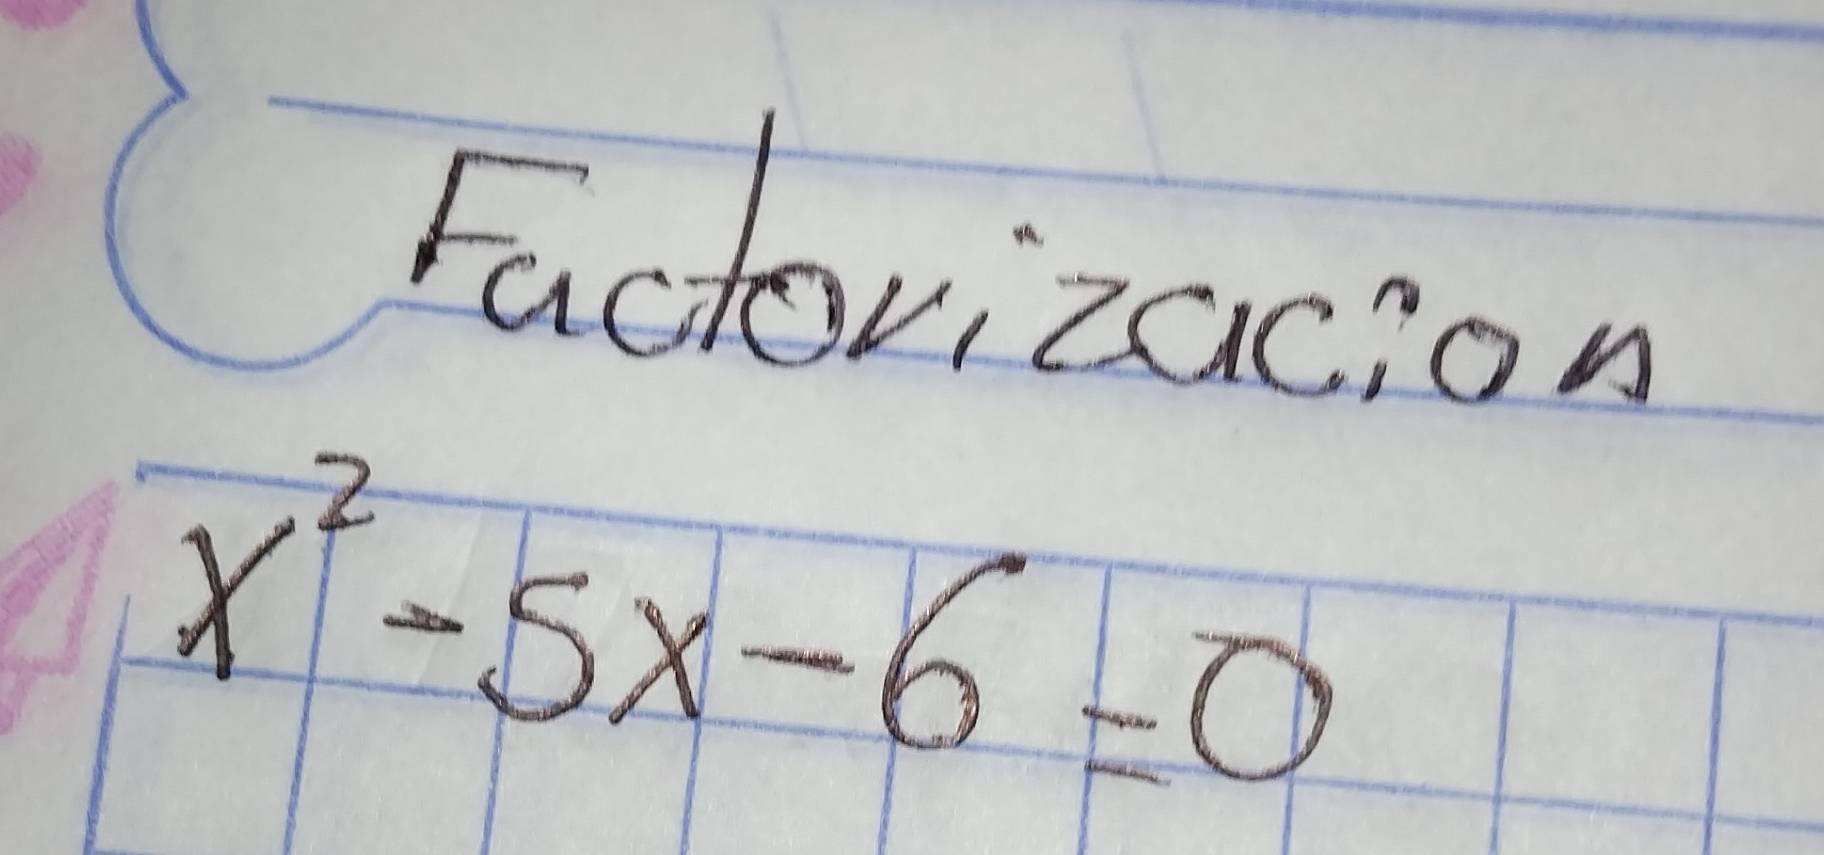 Factorización
x² - 5x - 6 = 0